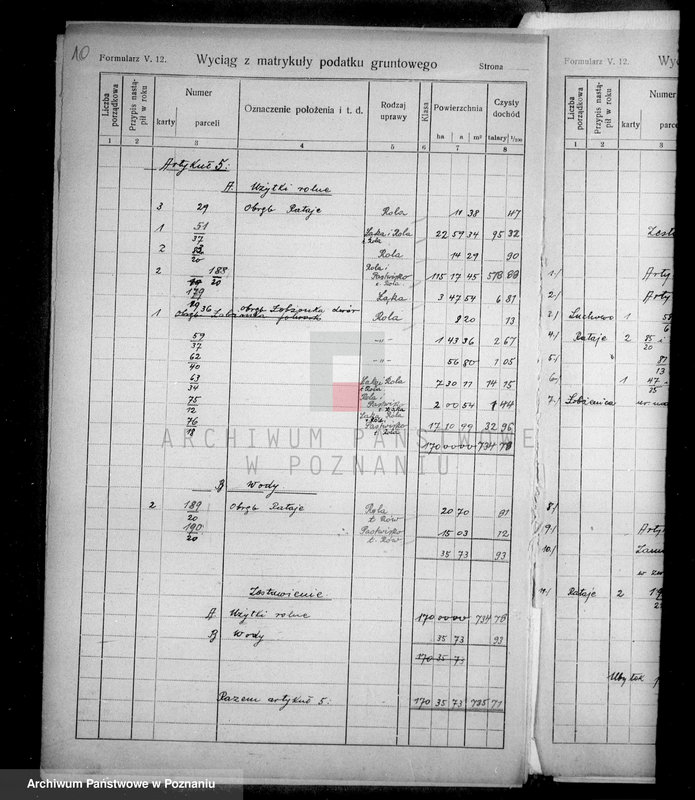 10
Formularz V. 12.
Wyciąg z matrykuły podatku gruntowego
Strona
Liczba porządkowa
Przypis nastąpił w roku
Numer
karty
parceli
Oznaczenie położenia i t. d.
Rodzaj uprawy
Klasa
Powierzchnia
ha a m²
Czysty dochód
talary 1/100
1 2 3 4 5 6 7 8
Artykuł 5:
A. Użytki rolne
3 29 Obręb Rataje Rola 11 38 47
1 51/37 Łąka i Rola 22 59 34 95 32
2 /20 Rola 14 29 90
2 188/20 Rola i Pastwisko 115 17 45 578
179/29 Łąka 3 47 54 6 81
obręb Łobżonka dwór
1 36 Rola 8 20 13
59/37 -"- 1 43 36 2 67
62/40 -"- 56 80 1 05
63/34 Łąka i Rola 7 30 11 14 15
75/12 Rola i Pastwisko 2 00 54 1 44
76/18 Łąka Rola Pastwisko 17 10 99 32 96
170 00 00 734 78
B Wody.
2 189/20 Obręb Rataje Rola t. Rów 20 70 81
190/20 Pastwisko t. Rów 15 03 12
35 73 93
Zestawienie
A Użytki rolne 170 00 00 734 78
B Wody 35 73 93
170 35 73
Razem artykuł 5. 170 35 73 735 71
Formularz V. 12.
Liczba porządkowa
Przypis nastąpił w roku
Numer
karty
parceli
1 2 3
1/
2/
3/ 1
4/ Rataje 2 85/20 i
5/ 87/13
6/ 1 47/75
7/ Łobżenica
8/
9/
10/
11/ Rataje 2
Ubytek
ARCHIWUM PAŃSTWOWE
W POZNANIU
Archiwum Państwowe w Poznaniu